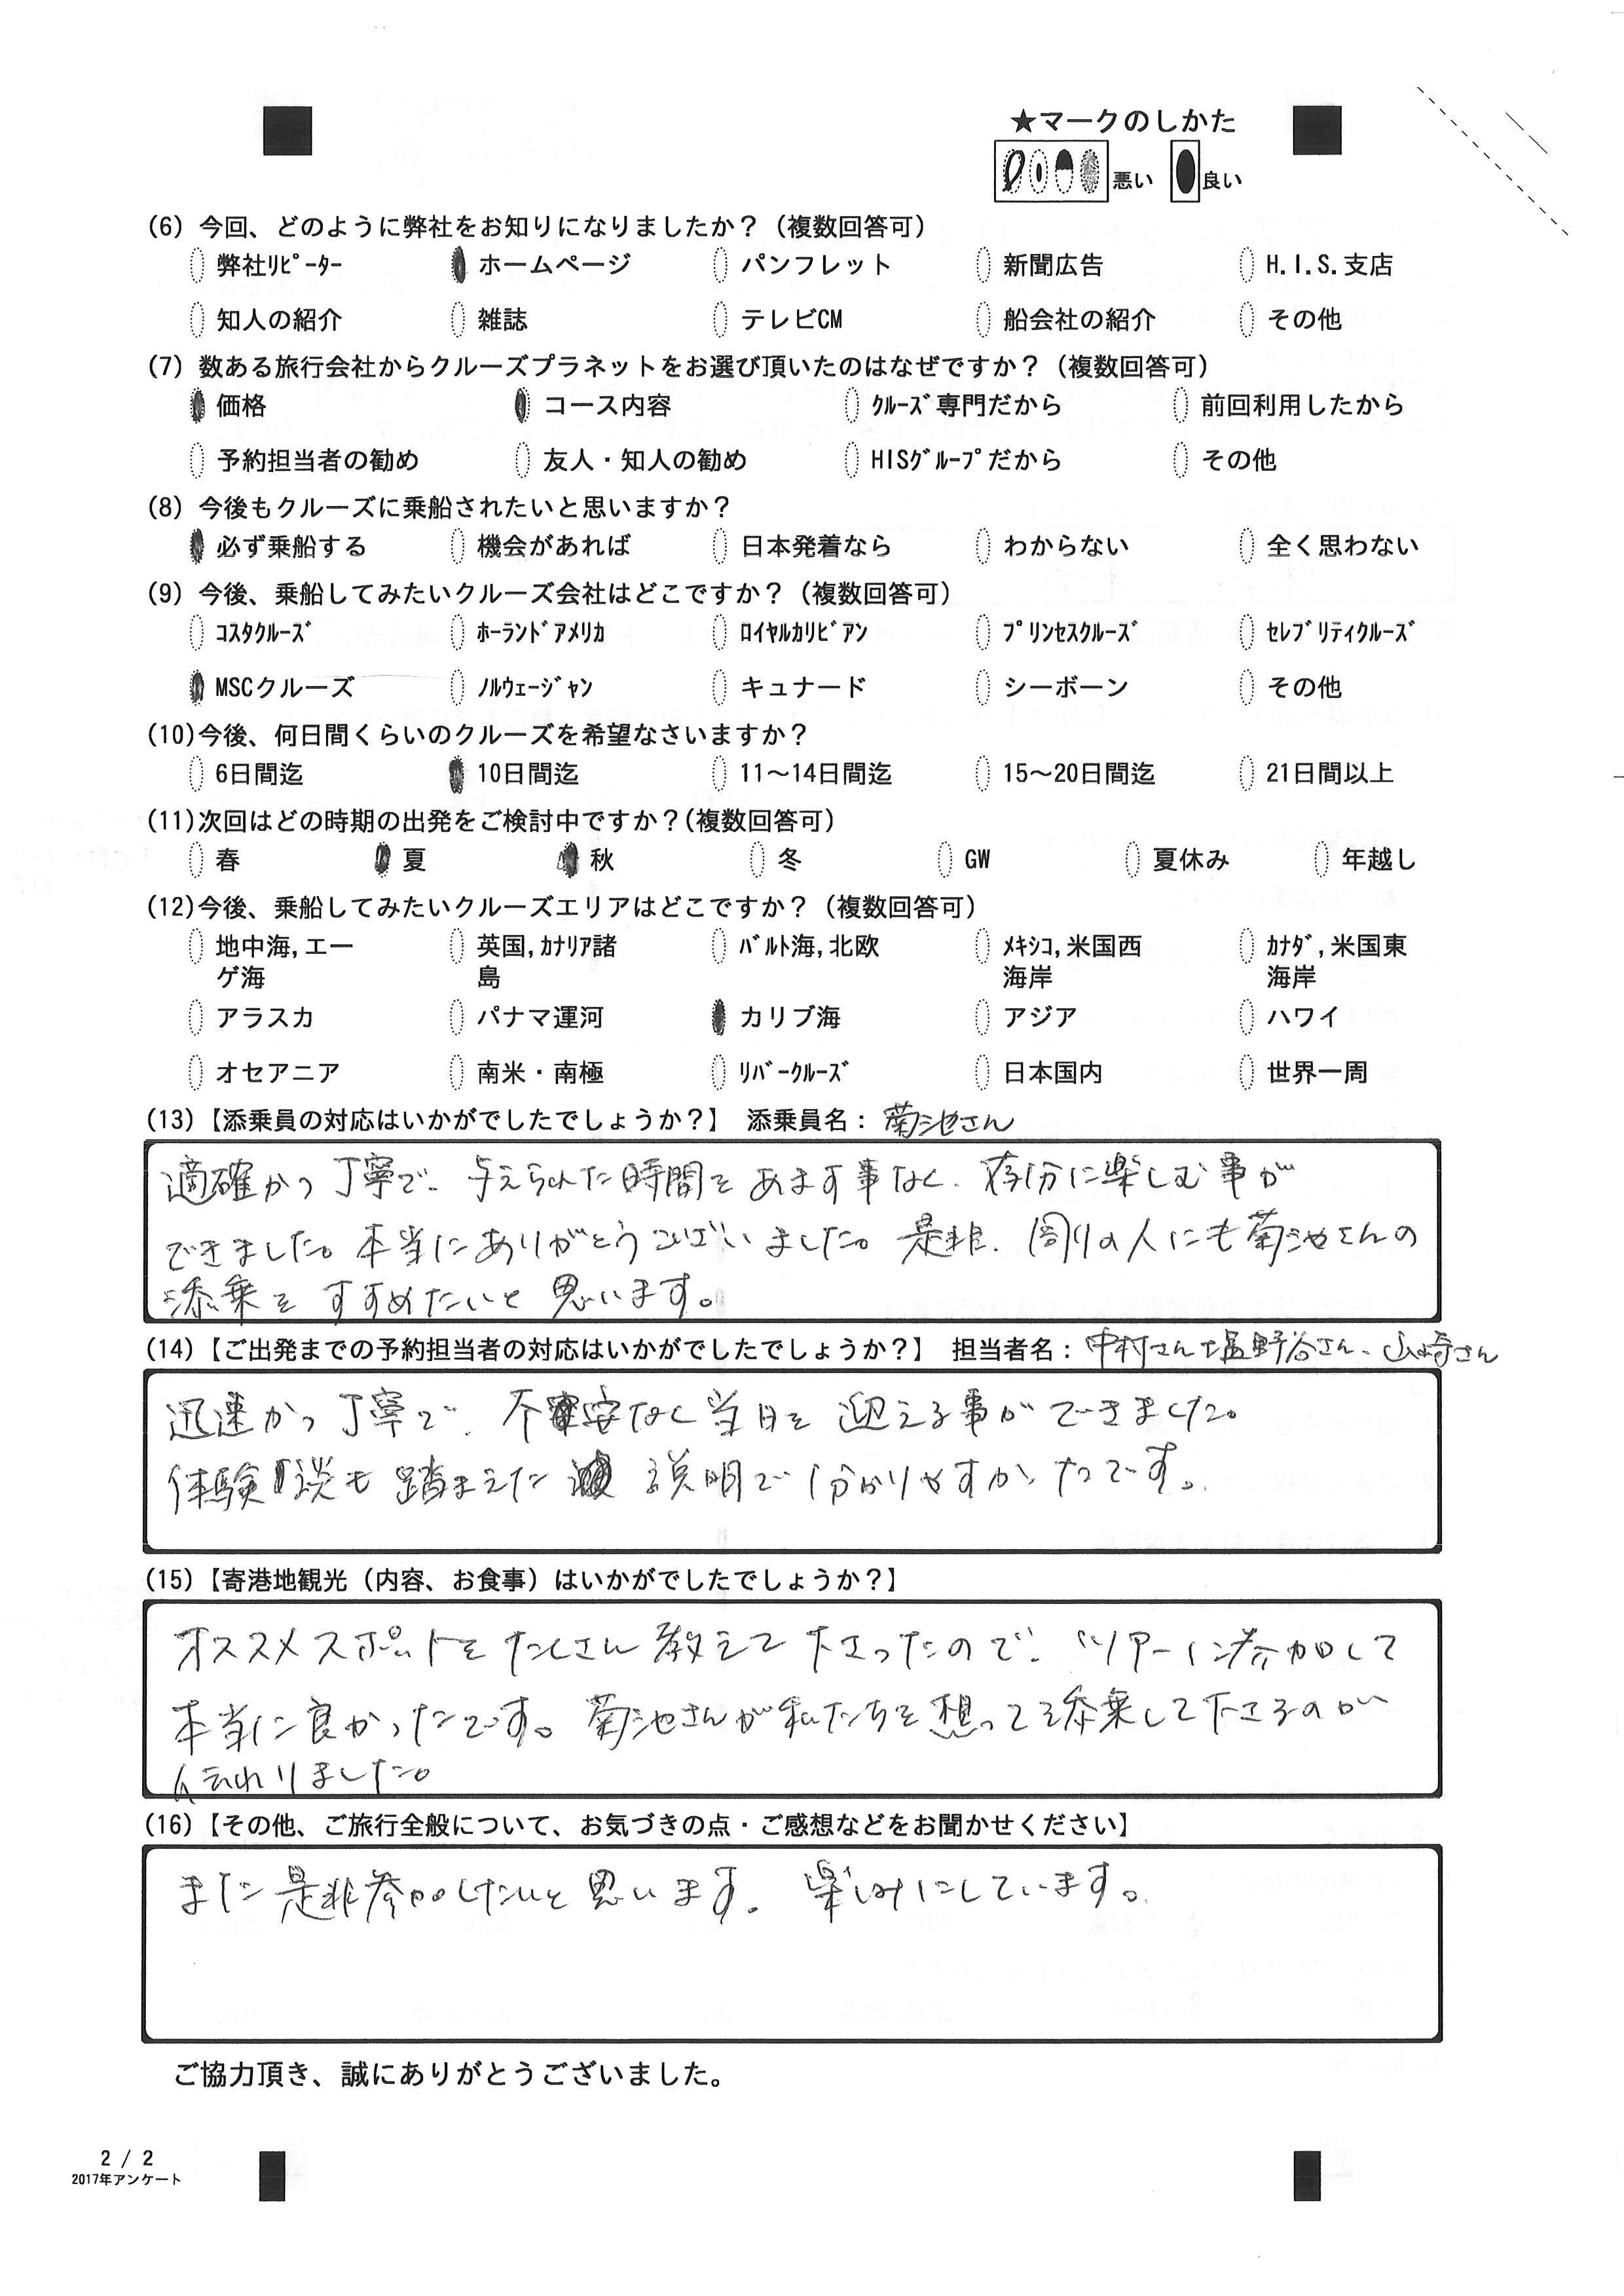 ★マークのしかた
悪い 良い
(6) 今回、どのように弊社をお知りになりましたか？（複数回答可）
弊社ﾘﾋﾟｰﾀｰ ホームページ パンフレット 新聞広告 H.I.S.支店
知人の紹介 雑誌 テレビCM 船会社の紹介 その他
(7) 数ある旅行会社からクルーズプラネットをお選び頂いたのはなぜですか？（複数回答可）
価格 コース内容 ｸﾙｰｽﾞ専門だから 前回利用したから
予約担当者の勧め 友人・知人の勧め HISｸﾞﾙｰﾌﾟだから その他
(8) 今後もクルーズに乗船されたいと思いますか？
必ず乗船する 機会があれば 日本発着なら わからない 全く思わない
(9) 今後、乗船してみたいクルーズ会社はどこですか？（複数回答可）
ｺｽﾀｸﾙｰｽﾞ ﾎｰﾗﾝﾄﾞｱﾒﾘｶ ﾛｲﾔﾙｶﾘﾋﾞｱﾝ ﾌﾟﾘﾝｾｽｸﾙｰｽﾞ ｾﾚﾌﾞﾘﾃｨｸﾙｰｽﾞ
MSCクルーズ ﾉﾙｳｪｰｼﾞｬﾝ キュナード シーボーン その他
(10)今後、何日間くらいのクルーズを希望なさいますか？
6日間迄 10日間迄 11～14日間迄 15～20日間迄 21日間以上
(11)次回はどの時期の出発をご検討中ですか？(複数回答可)
春 夏 秋 冬 GW 夏休み 年越し
(12)今後、乗船してみたいクルーズエリアはどこですか？（複数回答可）
地中海,エー 英国,ｶﾅﾘｱ諸 ﾊﾞﾙﾄ海,北欧 ﾒｷｼｺ,米国西 ｶﾅﾀﾞ,米国東
ゲ海 島 海岸 海岸
アラスカ パナマ運河 カリブ海 アジア ハワイ
オセアニア 南米・南極 ﾘﾊﾞｰｸﾙｰｽﾞ 日本国内 世界一周
(13)【添乗員の対応はいかがでしたでしょうか？】 添乗員名：菊池さん
適確かつ丁寧で、与えられた時間をあます事なく、存分に楽しむ事が
できました。本当にありがとうございました。是非、周りの人にも菊池さんの
添乗をすすめたいと思います。
(14)【ご出発までの予約担当者の対応はいかがでしたでしょうか？】 担当者名：中村さん、塩野谷さん、山崎さん
迅速かつ丁寧で、不安なく当日を迎える事ができました。
体験談も踏まえた説明で分かりやすかったです。
(15)【寄港地観光（内容、お食事）はいかがでしたでしょうか？】
オススメスポットをたくさん教えて下さったので、ツアーに参加して
本当に良かったです。菊池さんが私たちを想って添乗して下さるのが
伝わりました。
(16)【その他、ご旅行全般について、お気づきの点・ご感想などをお聞かせください】
また是非参加したいと思います。楽しみにしています。
ご協力頂き、誠にありがとうございました。
2 / 2
2017年アンケート